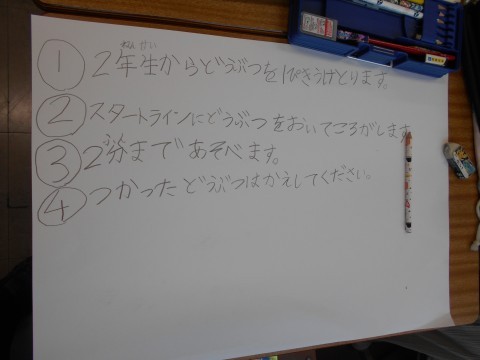 ねん せい
① 2年生からどうぶつを1ぴきうけとります。
② スタートラインにどうぶつをおいてころがします。
ふん
③ 2分まであそべます。
④ つかったどうぶつはかえしてください。